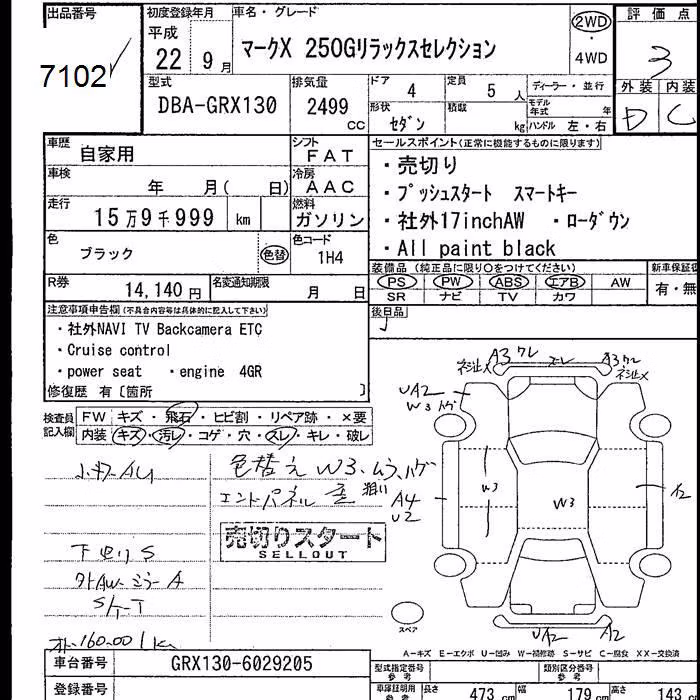 出品番号
7102
初度登録年月
平成
22 9月
車名・グレード
マークX 250Gリラックスセレクション
2WD
・
4WD
評価点
3
外装 内装
D C
型式
DBA-GRX130
排気量
2499
CC
ドア 4
定員 5 人
形状 セダン
積載 kg
ディーラー・並行
モデル年式 年
ハンドル 左・右
車歴 自家用
シフト FAT
車検 年 月( 日)
冷房 AAC
走行 15万9千999 km
燃料 ガソリン
色 ブラック
色替
色コード 1H4
R券 14,140円
名変通知期限 月 日
セールスポイント(正常に機能するものに限ります)
・売切り
・プッシュスタート スマートキー
・社外17inchAW ・ローダウン
・All paint black
装備品(純正品に限り〇をつけてください)
新車保証書
PS PW ABS エアB AW
SR ナビ TV カワ
有・無
後日品
注意事項申告欄(不具合内容等は具体的に記入して下さい)
・社外NAVI TV Backcamera ETC
・Cruise control
・power seat ・engine 4GR
修復歴 有〔箇所 〕
検査員記入欄
FW キズ・飛石・ヒビ割・リペア跡・×要
内装 キズ・汚レ・コゲ・穴・スレ・キレ・破レ
色替え W3、ムラ、ハゲ
エンドパネル 歪
売切りスタート
SELLOUT
下廻りS
外AW、ミラーA
S/T-T
A3 ワレ
ズレ
A3 ワレ
ネジ止メ
ネジ止メ
UA2
W3 ハゲ
W3
W3
A4
U2
A2
UA2
A2
スペア
A-キズ E-エクボ U-凹み W-補修跡 S-サビ C-腐食 XX-交換済
車台番号 GRX130-6029205
登録番号
型式指定番号 参考
類別区分番号 参考
車庫証明用 参考
長さ 473 cm
幅 179 cm
高さ 143